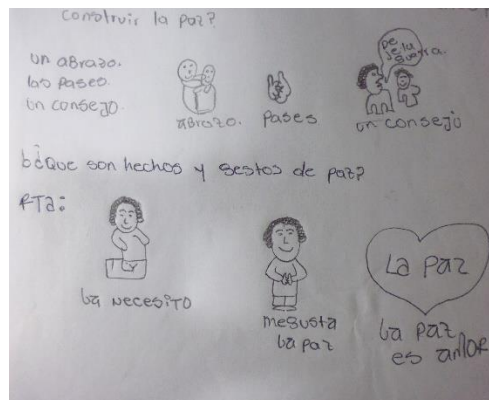 construir la paz?
un abrazo.
las pases.
un consejo.
abrazo.
pases
un consejo
b ¿Que son hechos y gestos de paz?
RTa:
La necesito
me gusta
La paz
La paz
La paz
es amor